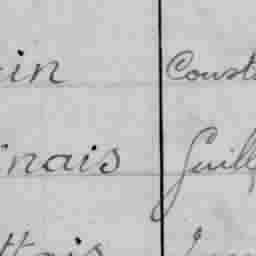 in Const
nais Guill
ttais